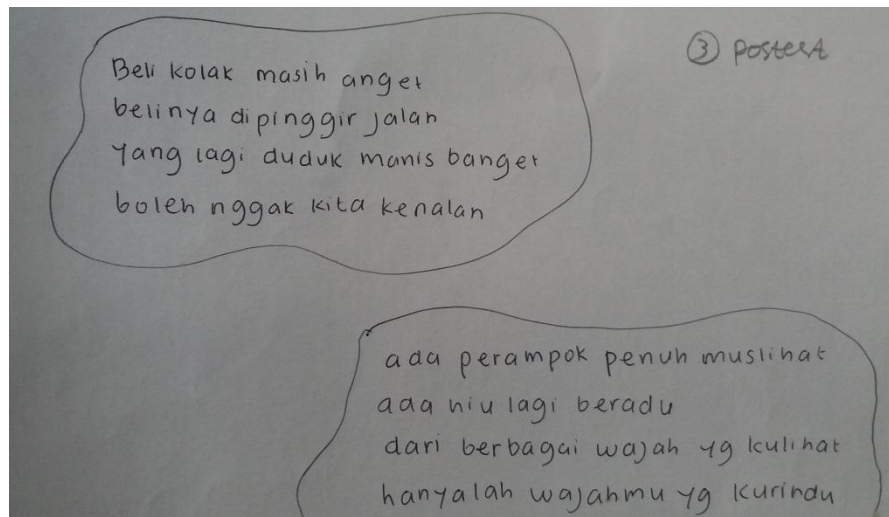 ③ Postest
Beli kolak masih anget
belinya dipinggir jalan
Yang lagi duduk manis banget
boleh nggak kita kenalan
ada perampok penuh muslihat
ada hiu lagi beradu
dari berbagai wajah yg kulihat
hanyalah wajahmu yg kurindu